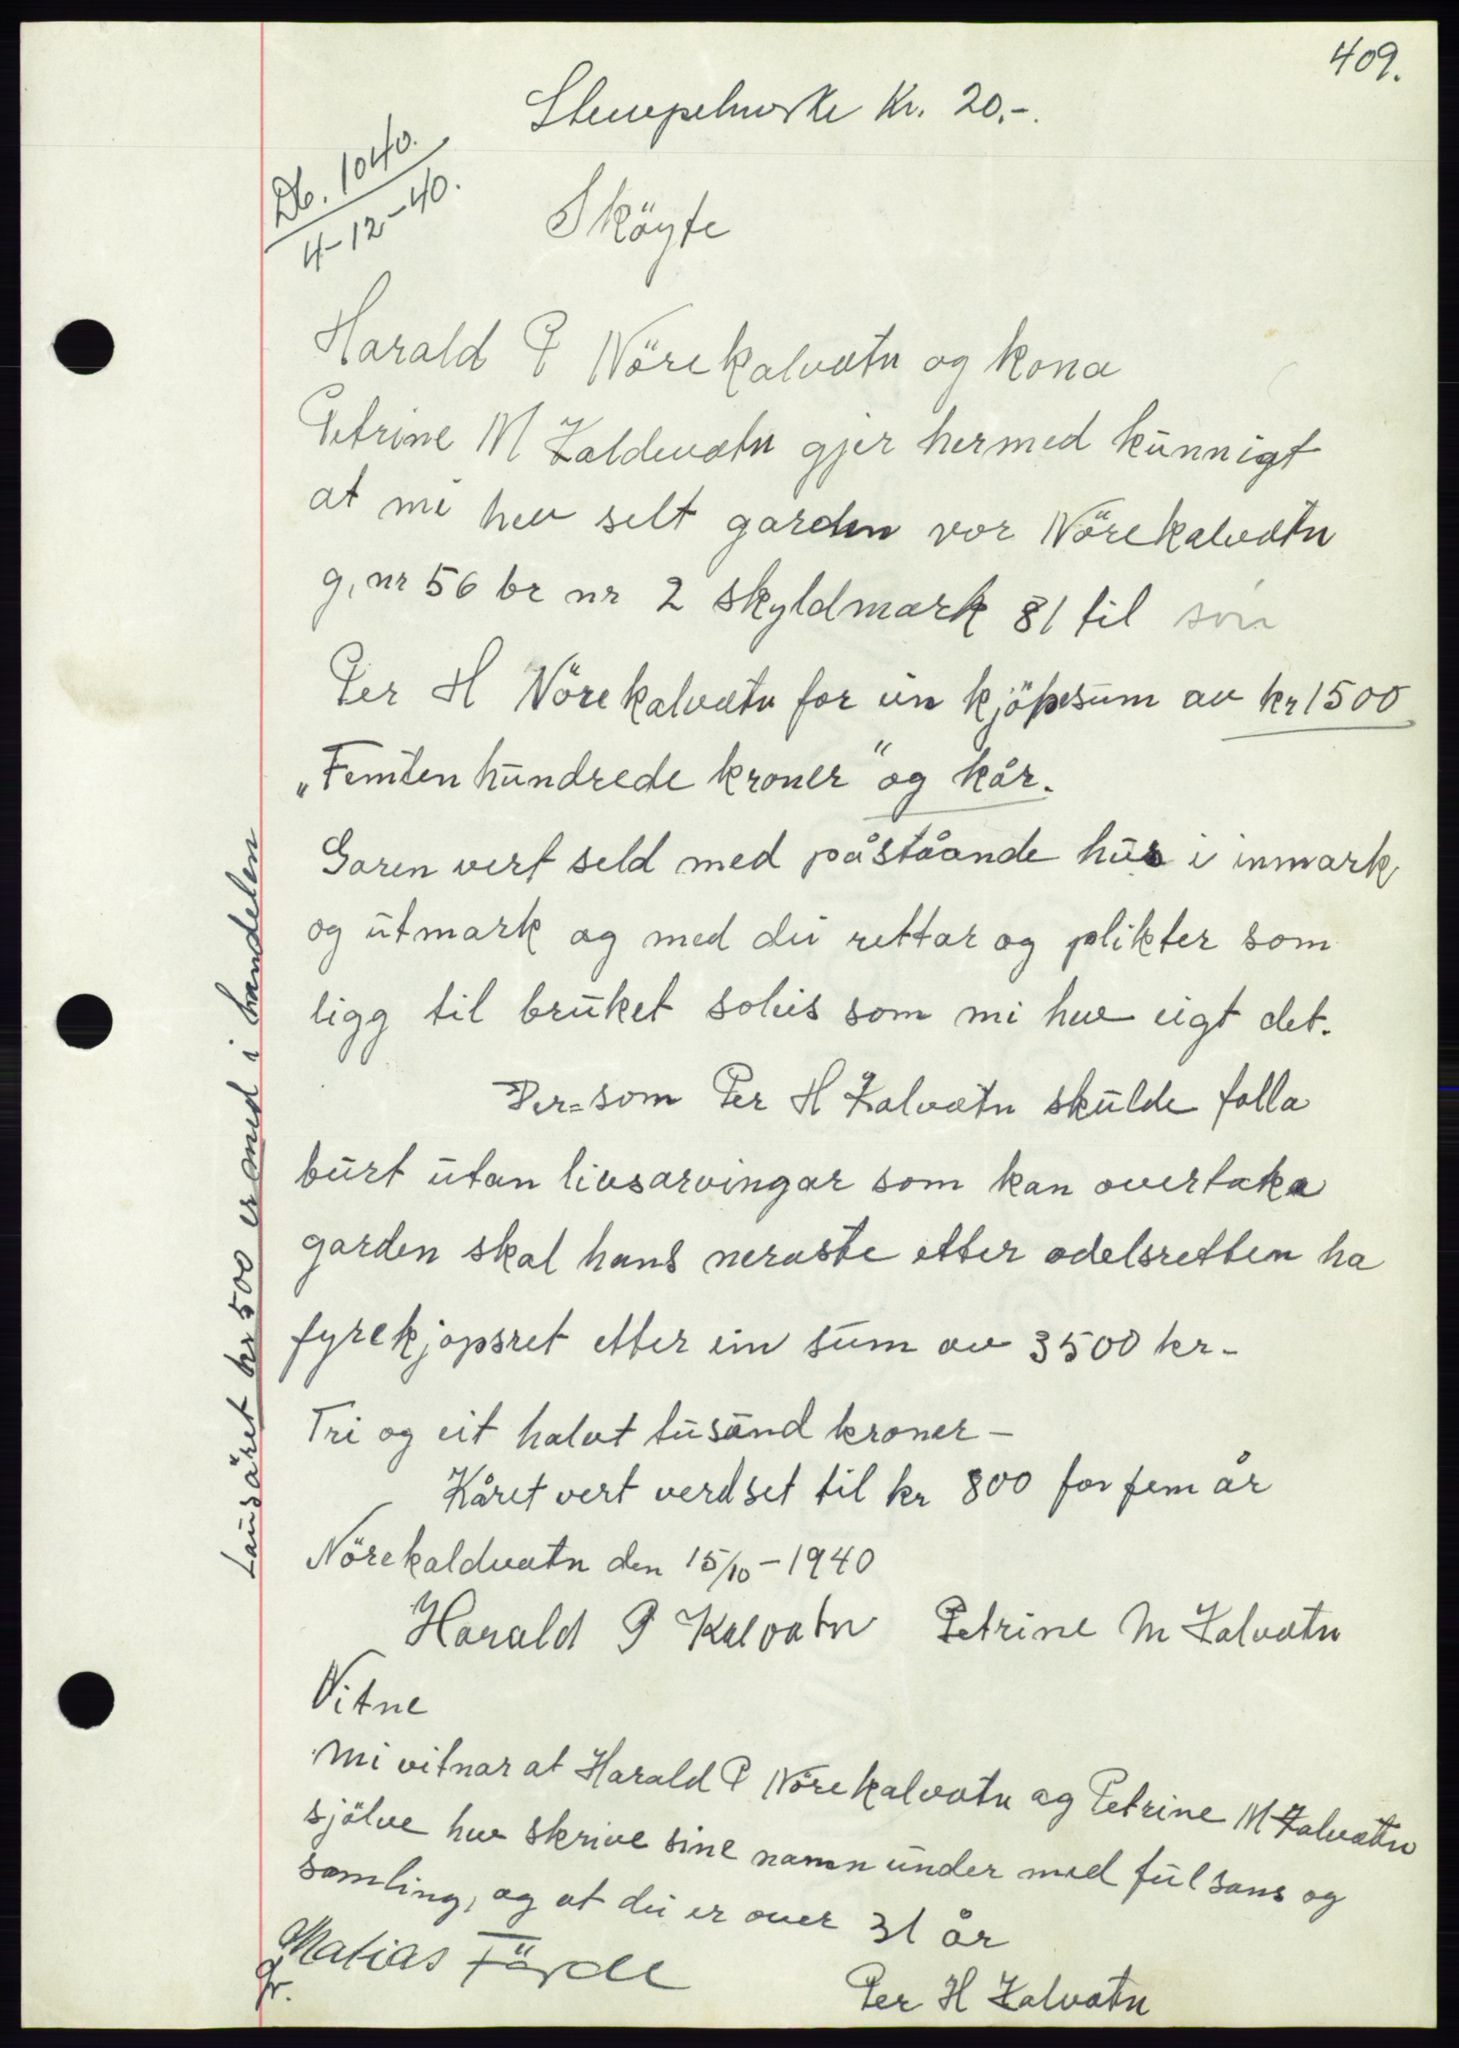 409.
Stempelmerke Kr. 20.-.
Db. 1040.
4-12-40.
Sköyte
Harald P Nörekalvatn og kona
Petrine M Kaldevatn gjer hermed kunnigt
at mi hev selt garden vor Nörekalvatn
g, nr 56 br nr 2 skyldmark 81 til son
Per H Nörekalvatn for ein kjöpesum av kr 1500
„Femten hundrede kroner" og kår.
Garen vert seld med påstående hus i inmark
og utmark og med dei rettar og plikter som
ligg til bruket soleis som mi hev eigt det.
Der=som Per H Kalvatn skulde falla
burt utan livsarvingar som kan overtaka
garden skal hans neraste etter odelsretten ha
fyrekjøpsret etter ein sum av 3500 kr-
Tri og eit halvt tusund kroner-
Kåret vert verdset til kr 800 for fem år
Nörekaldvatn den 15/10-1940
Harald P Kalvatn Petrine M Kalvatn
Vitne
Mi vitnar at Harald P Nörekalvatn og Petrine M Kalvatn
sjölve hev skrive sine namn under med ful sans og
samling, og at dei er over 21 år
Matias Förde
Per H Kalvatn
Lausöret kr 500 er med i handelen